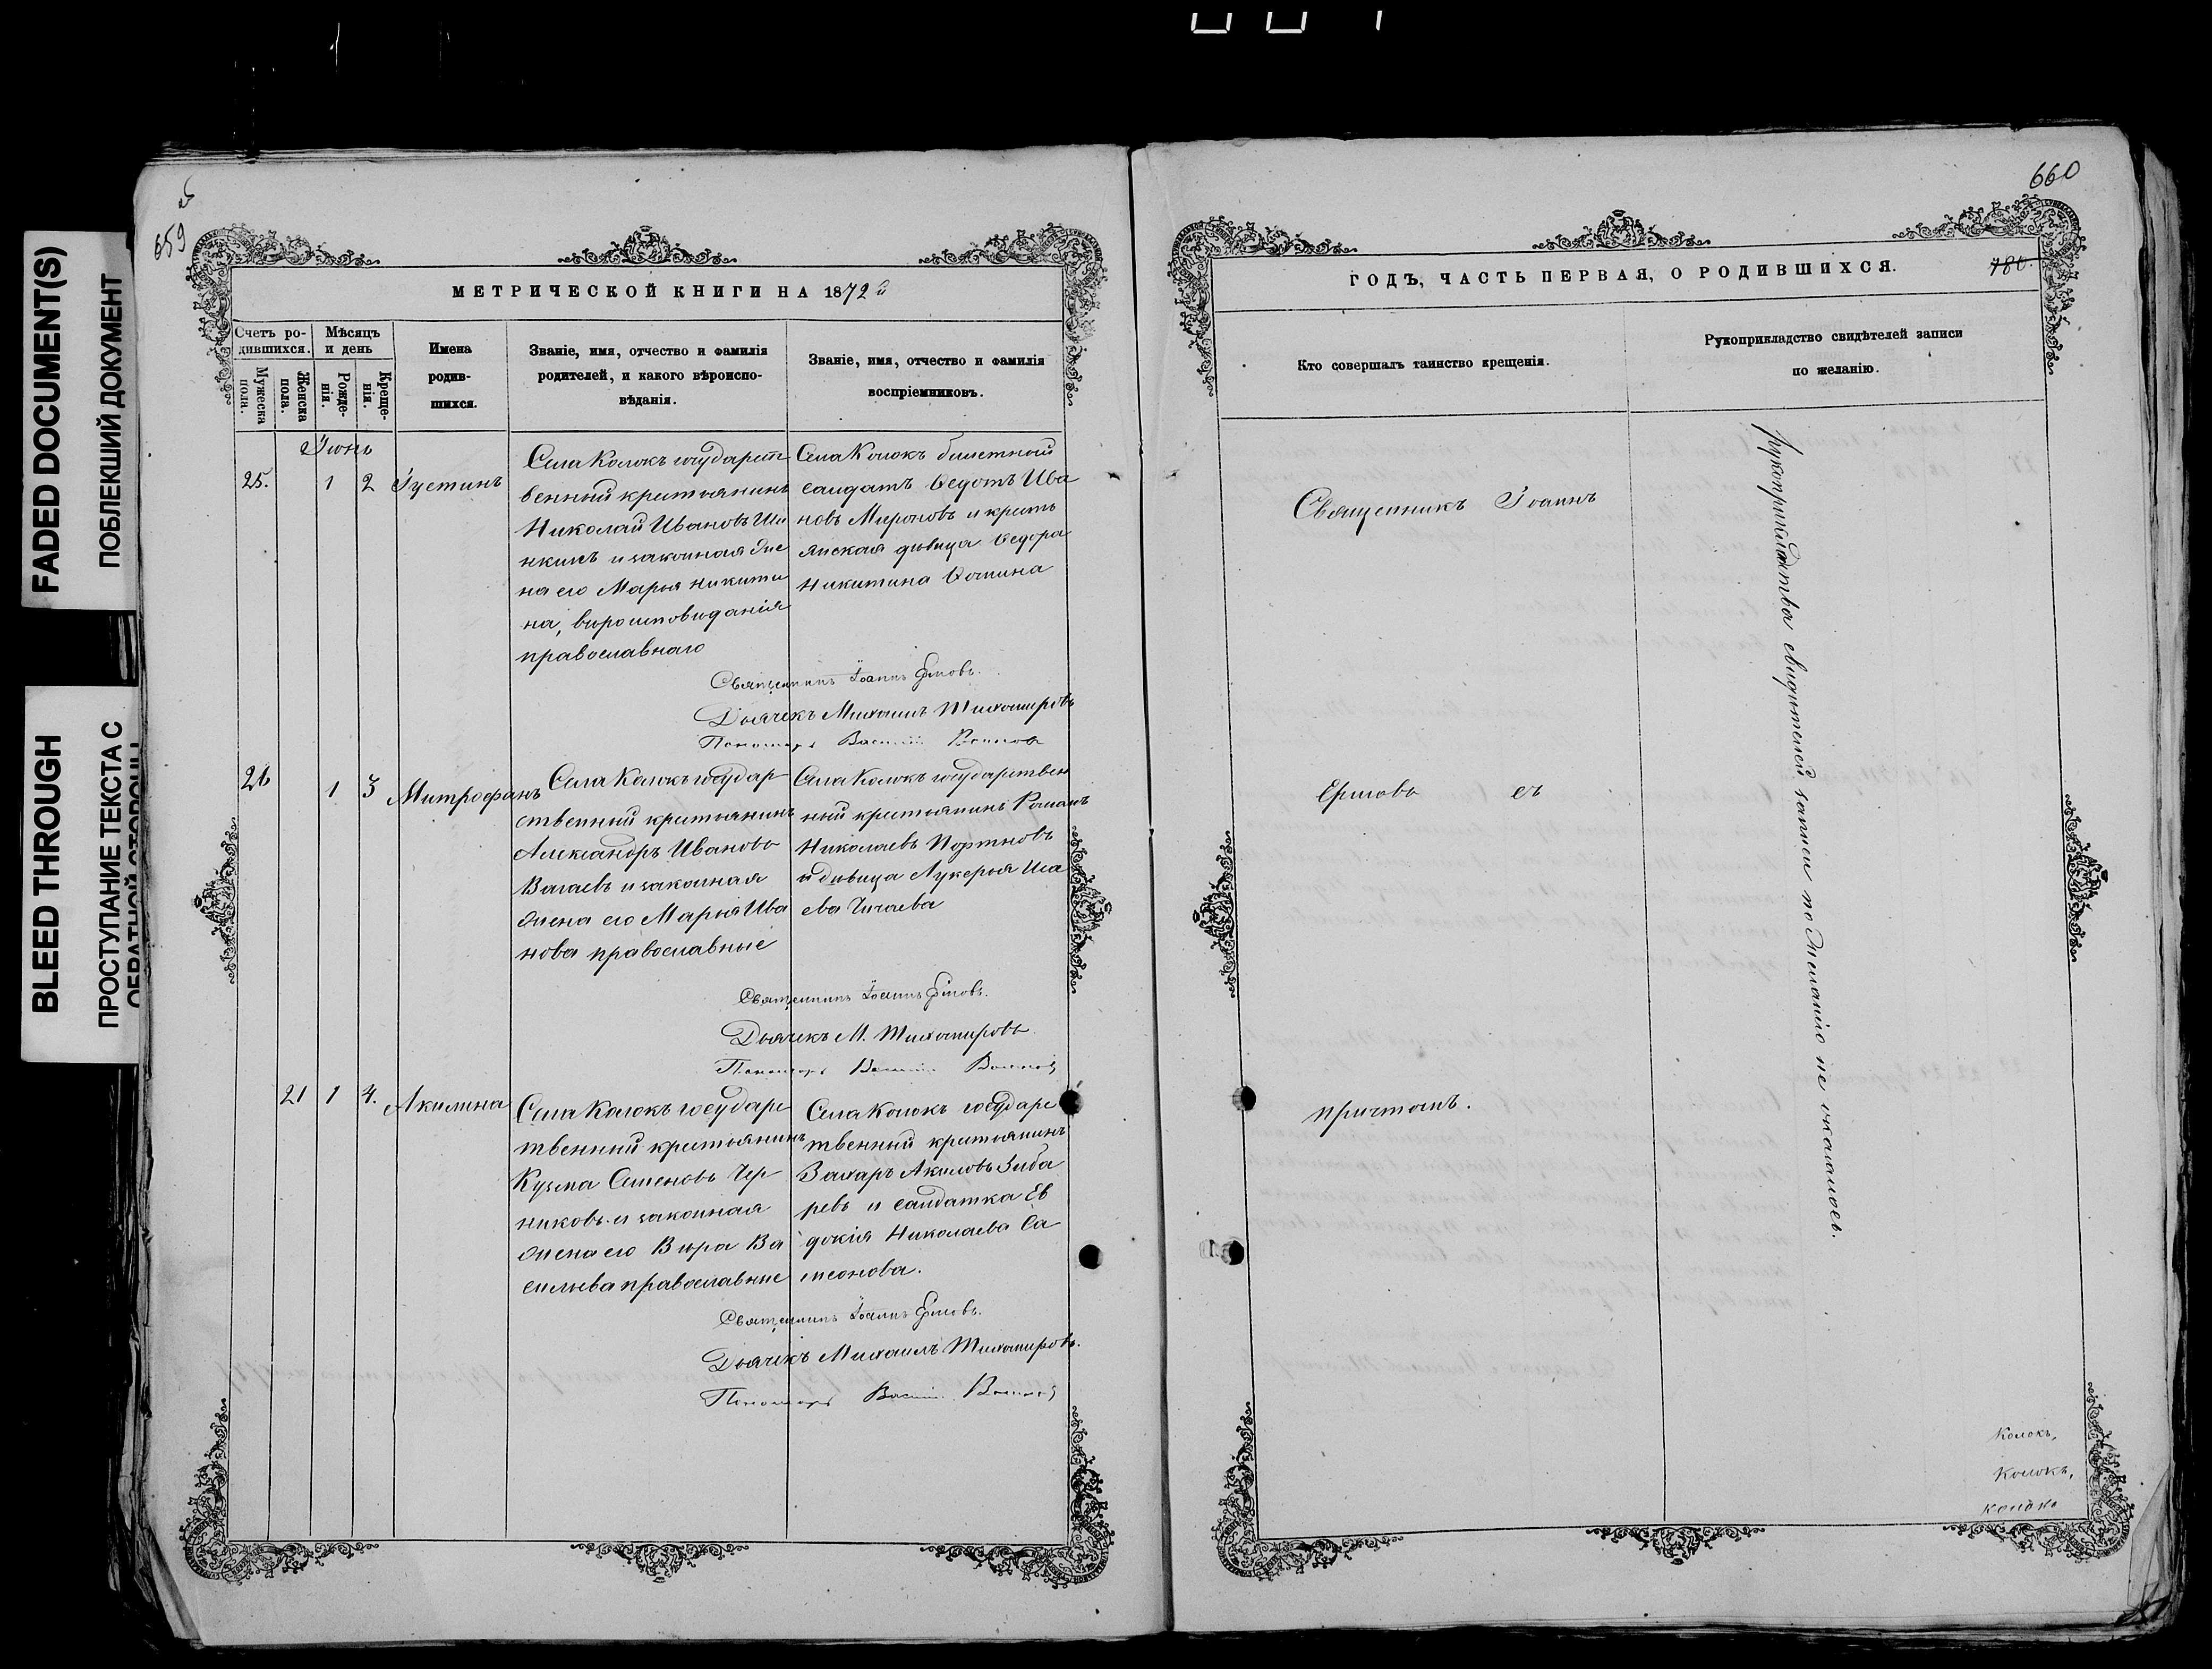 FADED DOCUMENT(S)
ПОБЛЕКШИЙ ДОКУМЕНТ
BLEED THROUGH
ПРОСТУПАНИЕ ТЕКСТА С
ОБРАТНОЙ СТОРОНЫ
659
МЕТРИЧЕСКОЙ КНИГИ НА 1872й
Счетъ ро-
дившихся.
Мѣсяцъ
и день
Мужеска
пола.
Женска
пола.
Рожде-
нія.
Креще-
нія.
Имена
родив-
шихся.
Званіе, имя, отчество и фамилія
родителей, и какого вѣроиспо-
вѣданія.
Званіе, имя, отчество и фамилія
воспріемниковъ.
Іюнь
25.
1
2
Іустинъ
Села Колокъ государст
венный крестьянинъ
Николай Ивановъ
и законная же
на его Марья Никити
на, вѣроисповѣданія
православнаго
Села Колокъ билетный
салдатъ Ѳедотъ Ива
новъ Мироновъ и кресть
янская дѣвица Ѳедора
Никитина Ѳомина
Священникъ Іоаннъ Ермовъ.
Дьячекъ Михаилъ Тихомировъ
Пономарь Василій
26
1
3
Митрофанъ
Села Колокъ государ
ственный крестьянинъ
Александръ Ивановъ
Валаевъ и законная
жена его Марья Ива
нова православные
Села Колокъ государствен
ный крестьянинъ Романъ
Николаевъ Портновъ
и дѣвица Лукерья Иса
ева Чичаева
Священникъ Іоаннъ Ермовъ.
Дьячекъ М. Тихомировъ
Пономарь Василій
21
1
4.
Акилина
Села Колокъ государс
твенный крестьянинъ
Кузма Семеновъ Чер
никовъ и законная
жена его Вѣра Ва
сильева православные
Села Колокъ государс
твенный крестьянинъ
Захаръ Акиловъ Зиба
ревъ и салдатка Ев
докія Николаева Са
мсонова.
Священникъ Іоаннъ Ермовъ.
Дьячекъ Михаилъ Тихомировъ.
Пономарь Василій
660
ГОДЪ, ЧАСТЬ ПЕРВАЯ, О РОДИВШИХСЯ.
180.
Кто совершалъ таинство крещенія.
Рукоприкладство свидѣтелей записи
по желанію.
Священникъ Іоаннъ
Ермовъ съ
причтомъ.
Рукоприкладства свидѣтелей записи по желанію не оказалось.
Колокъ,
Колокъ,
Колокъ